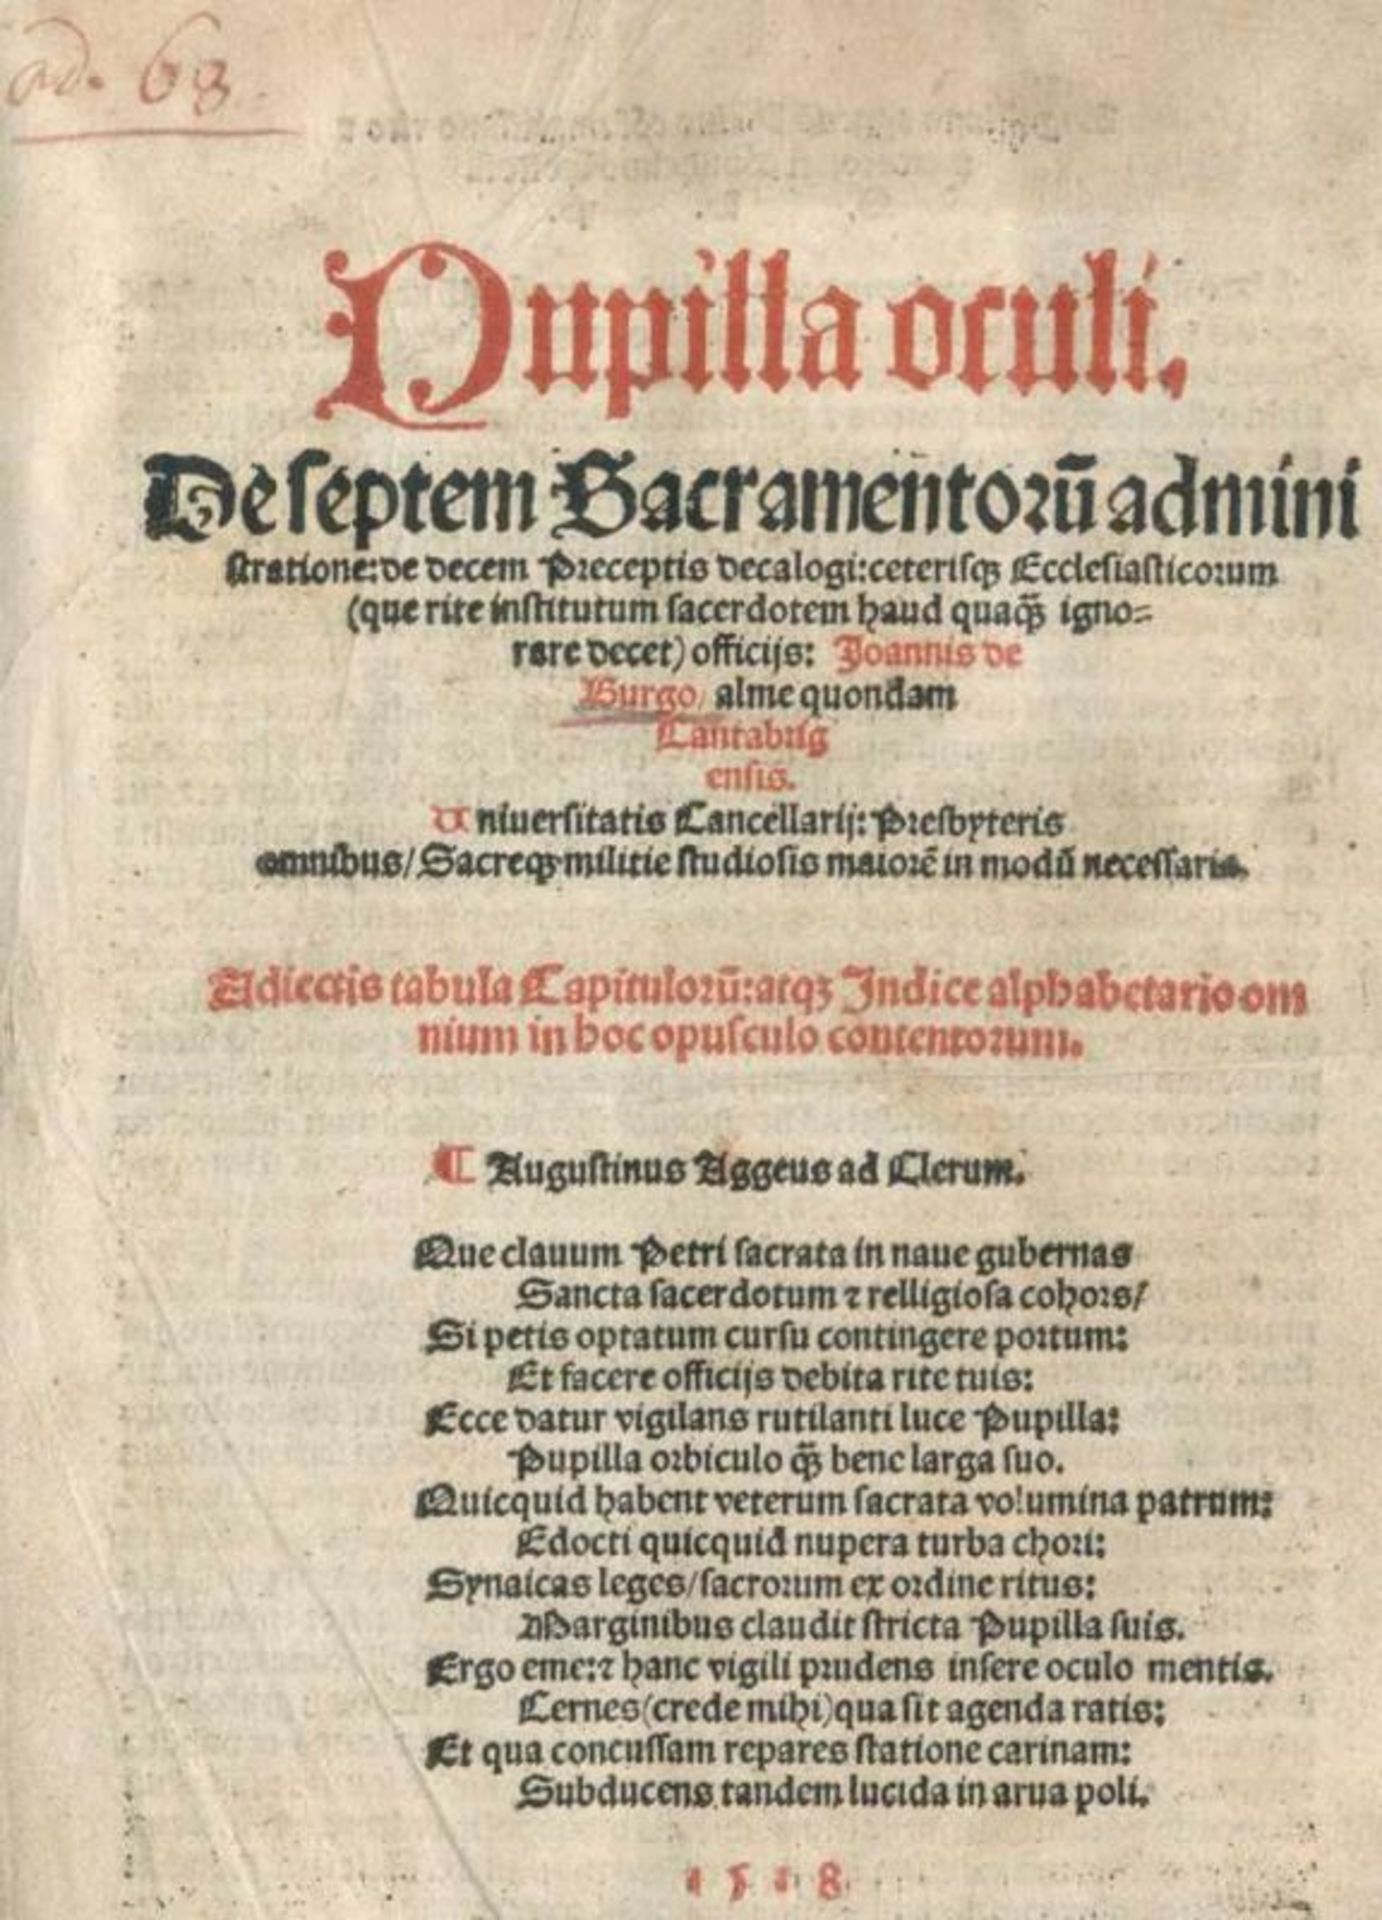 ad. 68
Pupilla oculi.
De septem Sacramentorū admini
stratione: de decem Preceptis decalogi: ceterisqꝫ Ecclesiasticorum
(que rite institutum sacerdotem haud quaqꝫ̃ igno⸗
rare decet) officijs: Joannis de
Burgo/ alme quondam
Cantabrig
ensis.
Uniuersitatis Cancellarij: Presbyteris
omnibus/ Sacreqꝫ militie studiosis maiorē in modū necessaria.
Adiectis tabula Capitulorū: atqꝫ Indice alphabetario om
nium in hoc opusculo contentorum.
¶ Augustinus Aggeus ad Clerum.
Que clauum Petri sacrata in naue gubernas
Sancta sacerdotum ⁊ relligiosa cohors/
Si petis optatum cursu contingere portum:
Et facere officijs debita rite tuis:
Ecce datur vigilans rutilanti luce Pupilla:
Pupilla orbiculo qꝫ̃ bene larga suo.
Quicquid habent veterum sacrata volumina patrum:
Edocti quicquid nupera turba chori:
Synaicas leges/ sacrorum ex ordine ritus:
Marginibus claudit stricta Pupilla suis.
Ergo eme: ⁊ hanc vigili prudens insere oculo mentis.
Cernes (crede mihi) qua sit agenda ratis:
Et qua concussam repares statione carinam:
Subducens tandem lucida in arua poli.
1518